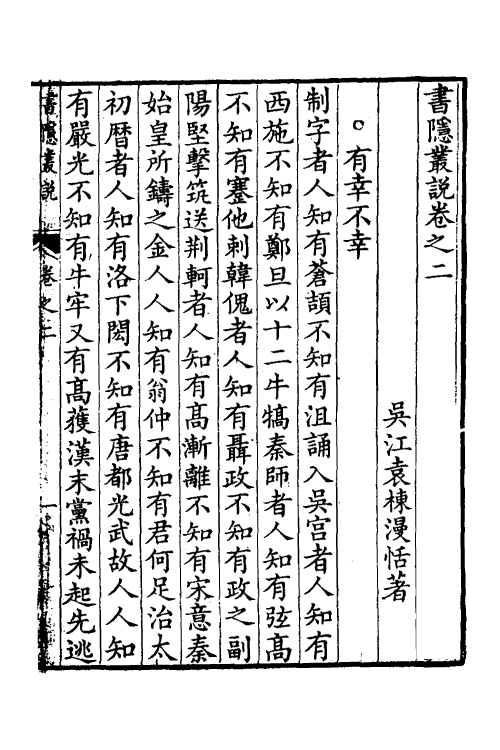 書隱叢說卷之二
吳江袁棟漫恬著
○有幸不幸
制字者人知有蒼頡不知有沮誦入吳宮者人知有
西施不知有鄭旦以十二牛犒秦師者人知有弦髙
不知有蹇他刺韓傀者人知有聶政不知有政之副
陽堅擊筑送荆軻者人知有髙漸離不知有宋意秦
始皇所鑄之金人人知有翁仲不知有君何足治太
初暦者人知有洛下閎不知有唐都光武故人人知
有嚴光不知有牛牢又有髙獲漢末黨禍未起先逃
書隱叢說
卷之二
一